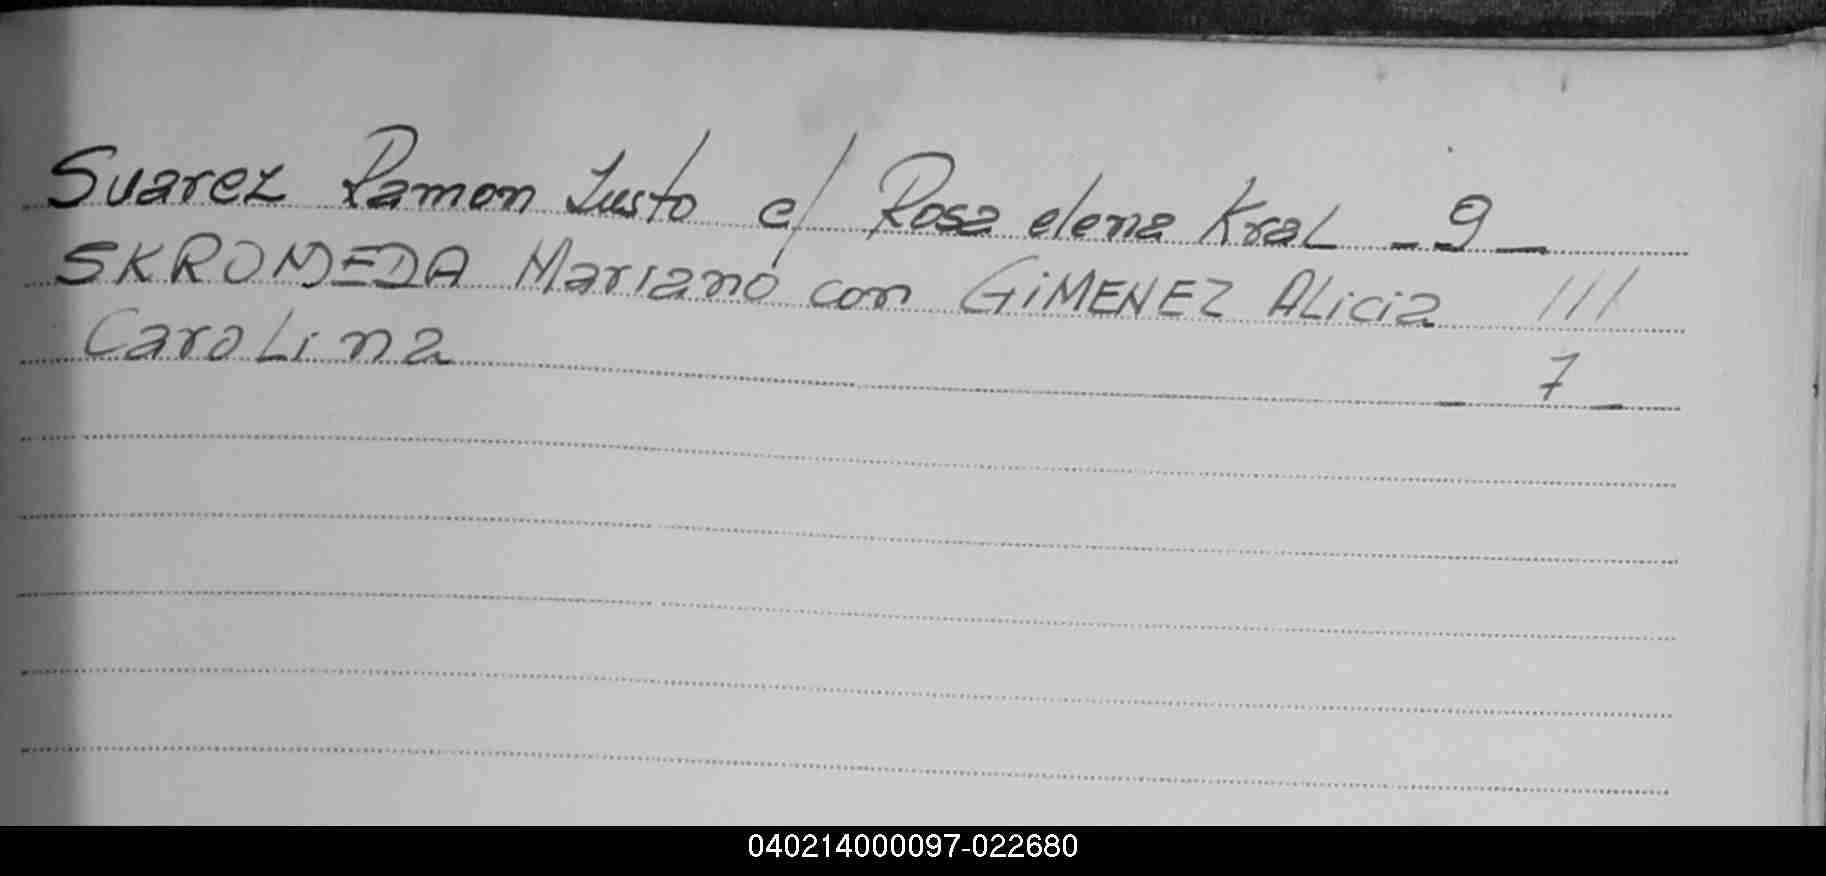 Suarez Ramon Justo c/ Rosa elena Kral - 9 -
SKROMEDA Mariano con GiMENEZ ALicia ///
CaroLina - 7 -
040214000097-022680